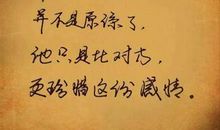 并不是原谅了，
他只是比对方，
更珍惜这份感情。